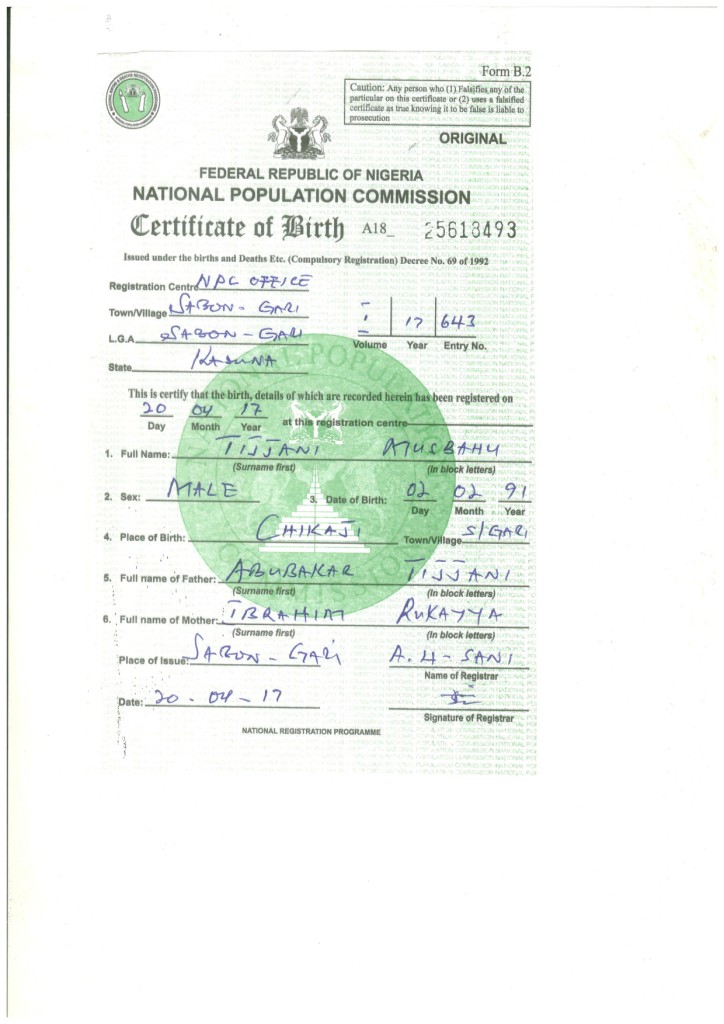 Form B.2
Caution: Any person who (1) Falsifies any of the
particular on this certificate or (2) uses a falsified
certificate as true knowing it to be false is liable to
prosecution
ORIGINAL
FEDERAL REPUBLIC OF NIGERIA
NATIONAL POPULATION COMMISSION
Certificate of Birth A18_ 25613493
Issued under the births and Deaths Etc. (Compulsory Registration) Decree No. 69 of 1992
Registration Centre NPC OFFICE
Town/Village SABON-GARI
L.G.A. SABON-GARI
I 17 643
Volume Year Entry No.
State KADUNA
This is certify that the birth, details of which are recorded herein has been registered on
20 04 17 at this registration centre
Day Month Year
1. Full Name: TIJJANI MUSBAHU
(Surname first) (In block letters)
2. Sex: MALE 3. Date of Birth: 02 02 91
Day Month Year
4. Place of Birth: CHIKAJI Town/Village S/GARI
5. Full name of Father: ABUBAKAR TIJJANI
(Surname first) (In block letters)
6. Full name of Mother: IBRAHIM RUKAYYA
(Surname first) (In block letters)
Place of Issue: SABON-GARI A. H-SANI
Name of Registrar
Date: 20-04-17
Signature of Registrar
NATIONAL REGISTRATION PROGRAMME